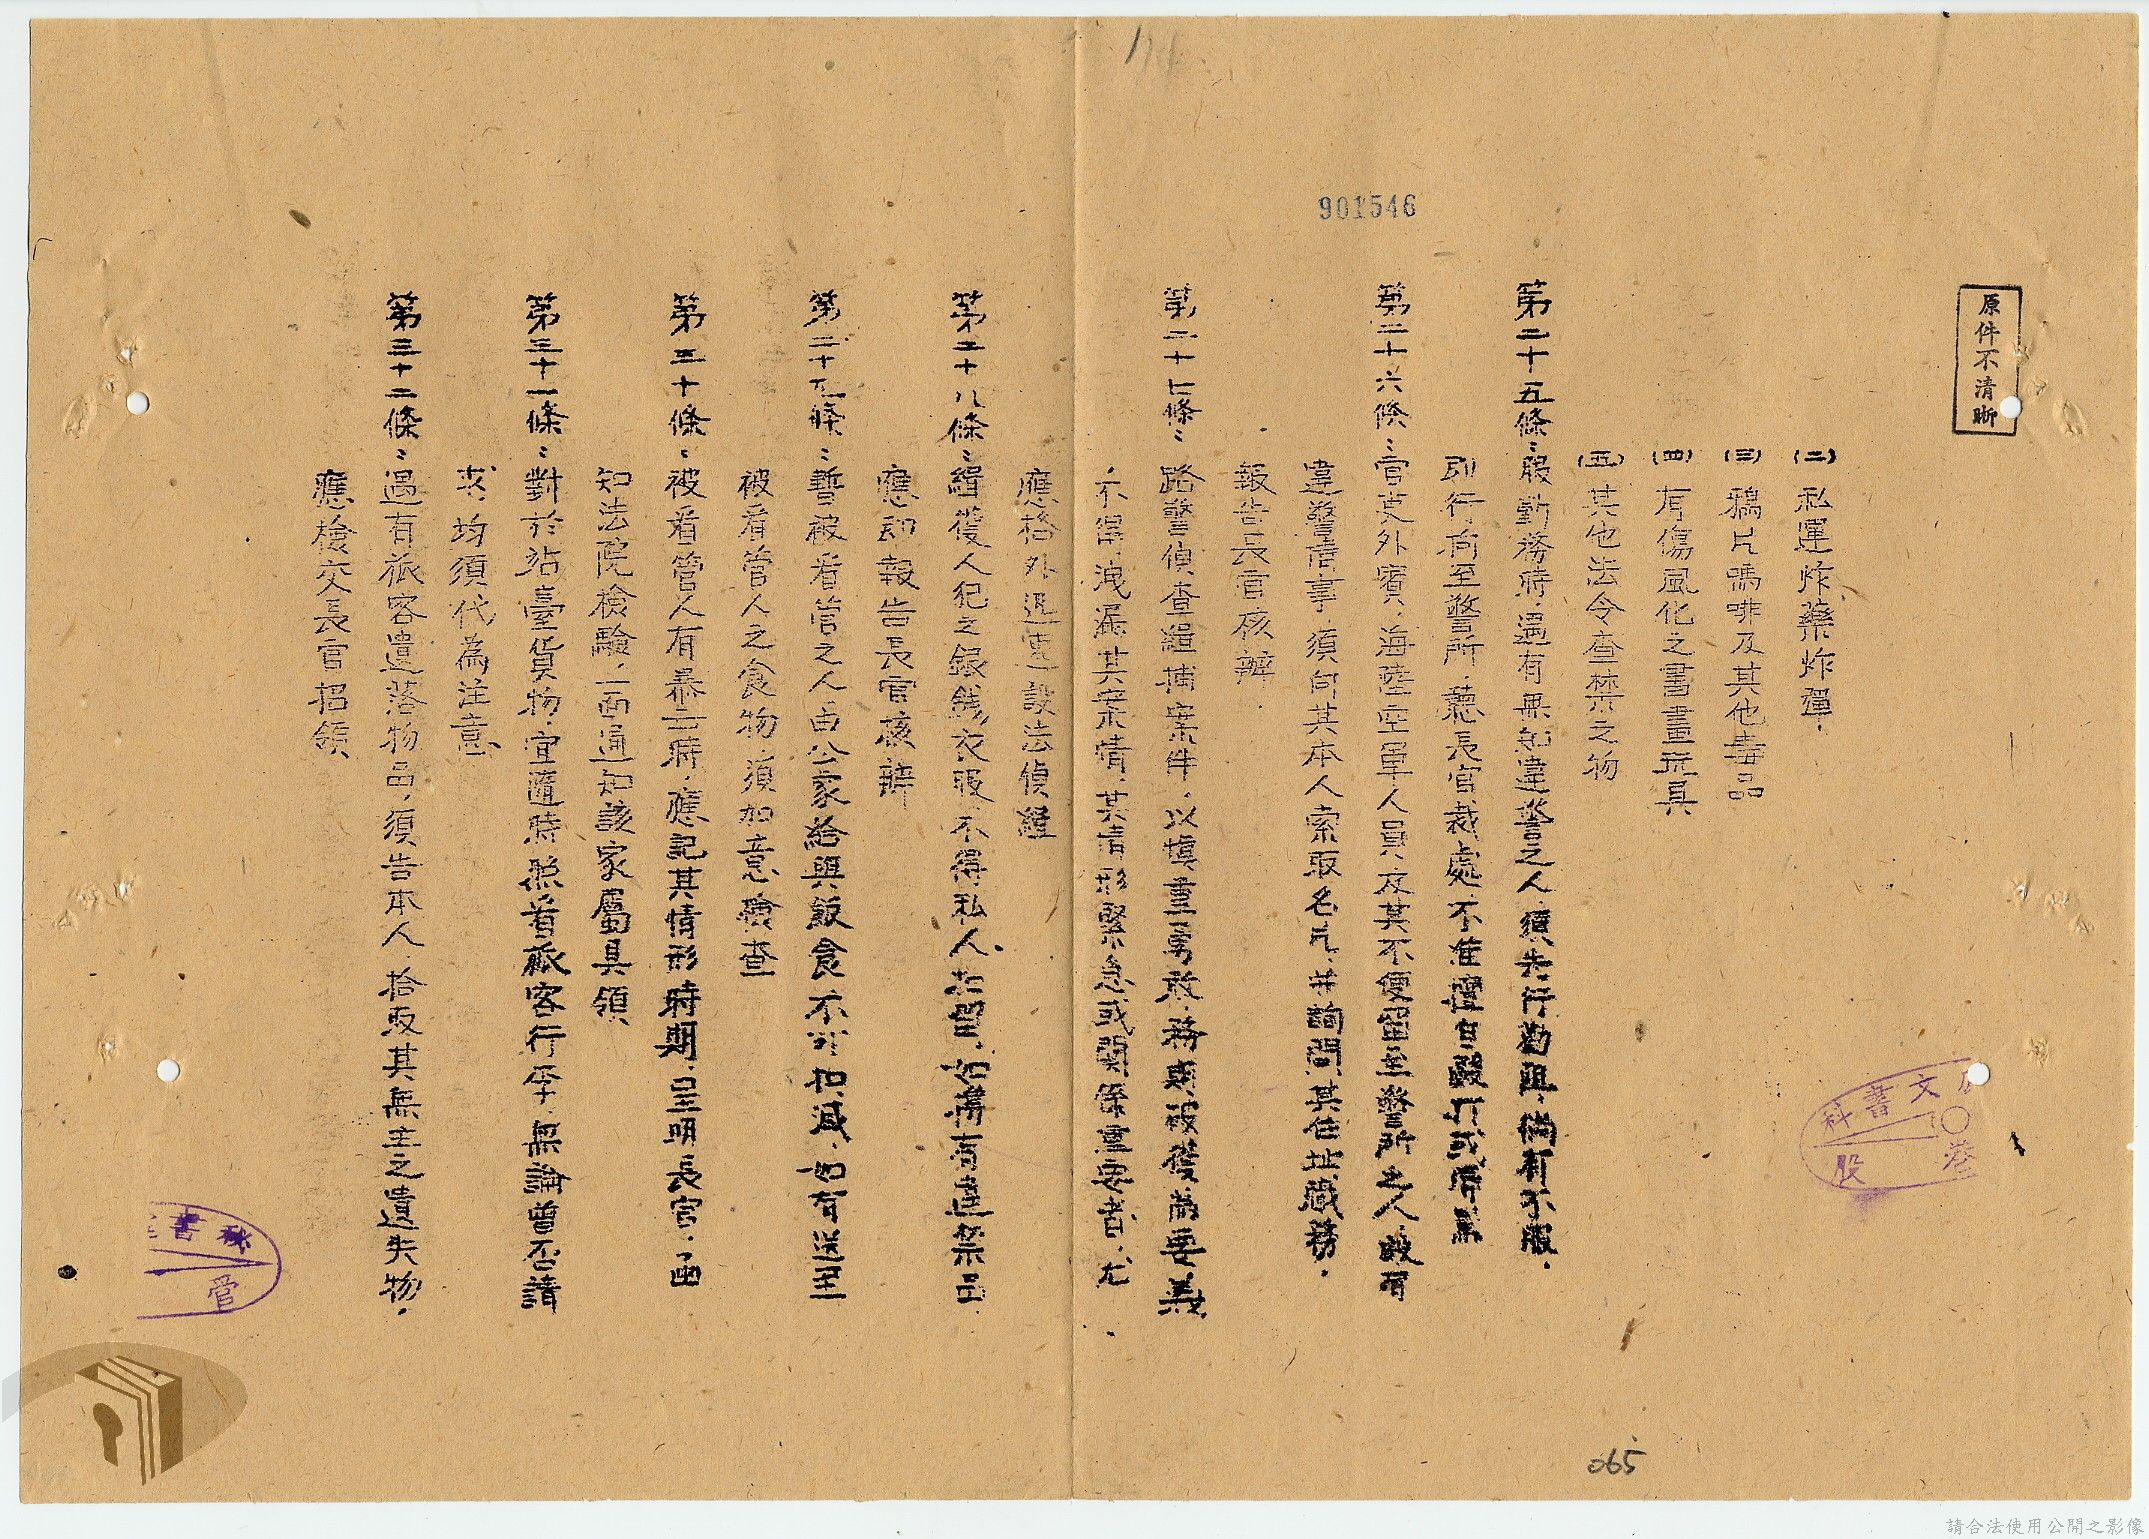 901546
原件不清晰
(二)私運炸藥炸彈．
(三)鴉片嗎啡及其他毒品
(四)有傷風化之書畫玩具
(五)其他法令查禁之物
第二十五條：服勤務時，遇有無知違警之人，須先行勸阻，倘有不服，
則行拘至警所，聽長官裁處，不准擅自毆打或辱罵
第二十六條：官吏外賓，海陸空軍人員及其不便留至警所之人，設有
違警情事，須向其本人索取名片，並詢問其住址職務，
報告長官核辦．
第二十七條：路警偵查緝捕案件，以慎重勇敢，務期破獲為要義
不得洩漏其案情，其情形緊急或關係重要者，尤
應格外迅速設法偵緝
第二十八條：緝獲人犯之銀錢，衣服，不得私人，如攜有違禁品
應即報告長官核辦
第二十九條：暫被看管之人，由公家給與飯食不可扣減，如有送至
被看管人之食物，須加意檢查
第三十條：被看管人有暴亡時，應記其情形時期，呈明長官，函
知法院檢驗，一面通知該家屬具領
第三十一條：對於站臺貨物，宜隨時照着旅客行李，無論曾否請
求，均須代為注意
第三十二條：遇有旅客遺落物品，須告本人，拾取其無主之遺失物，
應檢交長官招領
文書科
股
秘書
管
065
請合法使用公開之影像